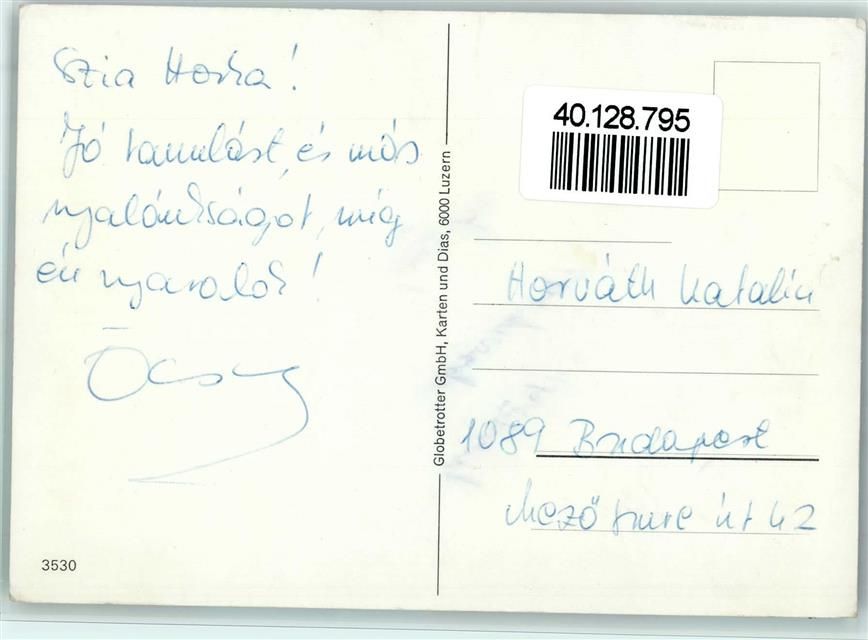 Szia Horka!
Jó tanulást, és más
nyalánkságot, míg
én nyaralok!
Öcsy
3530
Globetrotter GmbH, Karten und Dias, 6000 Luzern
40.128.795
Horváth Katalin
1089 Budapest
Mező Imre út 42